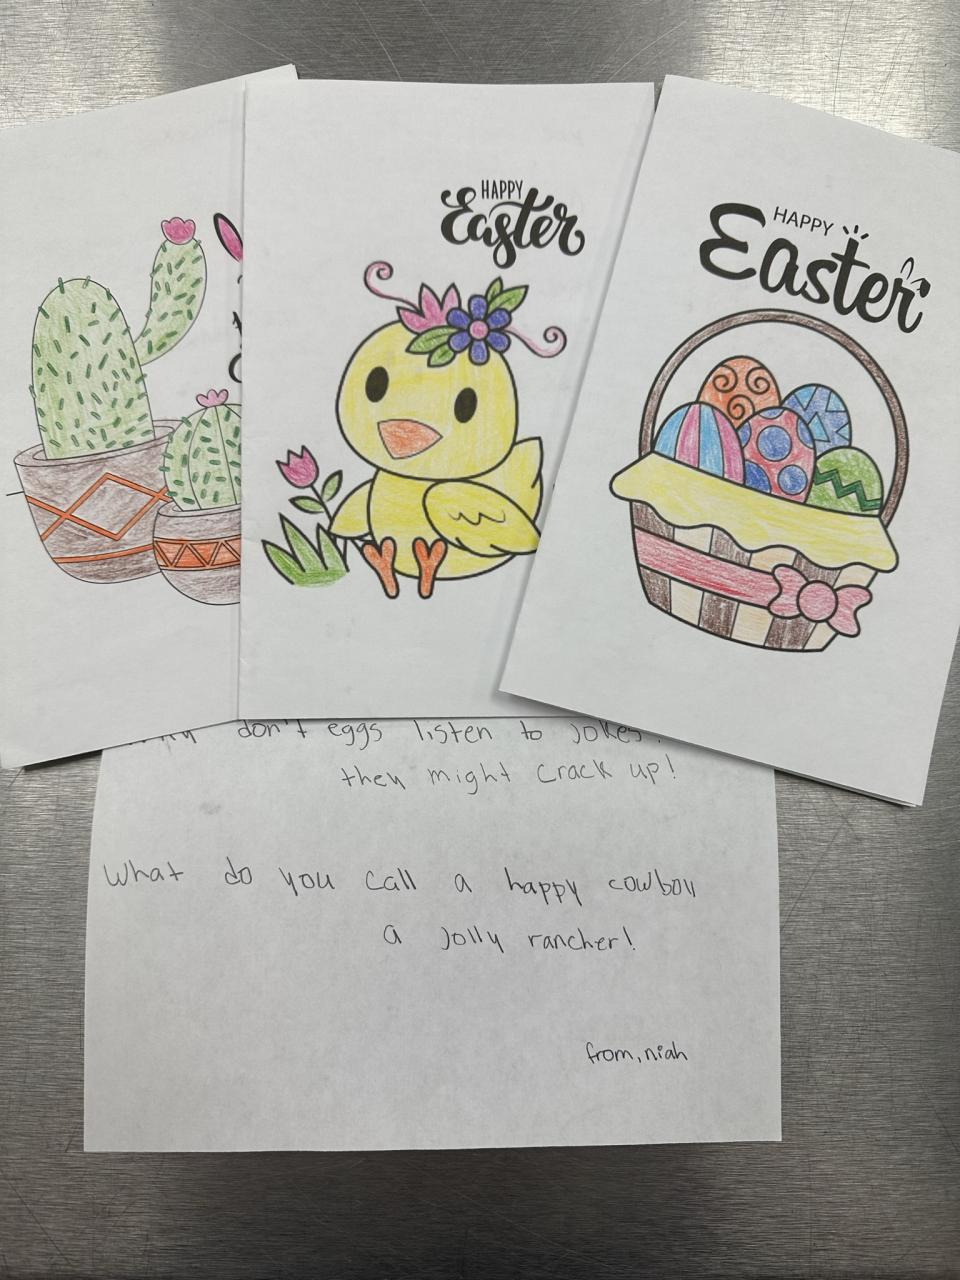 HAPPY
Easter
HAPPY
Easter
don't eggs listen to jokes?
they might crack up!
What do you call a happy cowboy
a jolly rancher!
from, niah